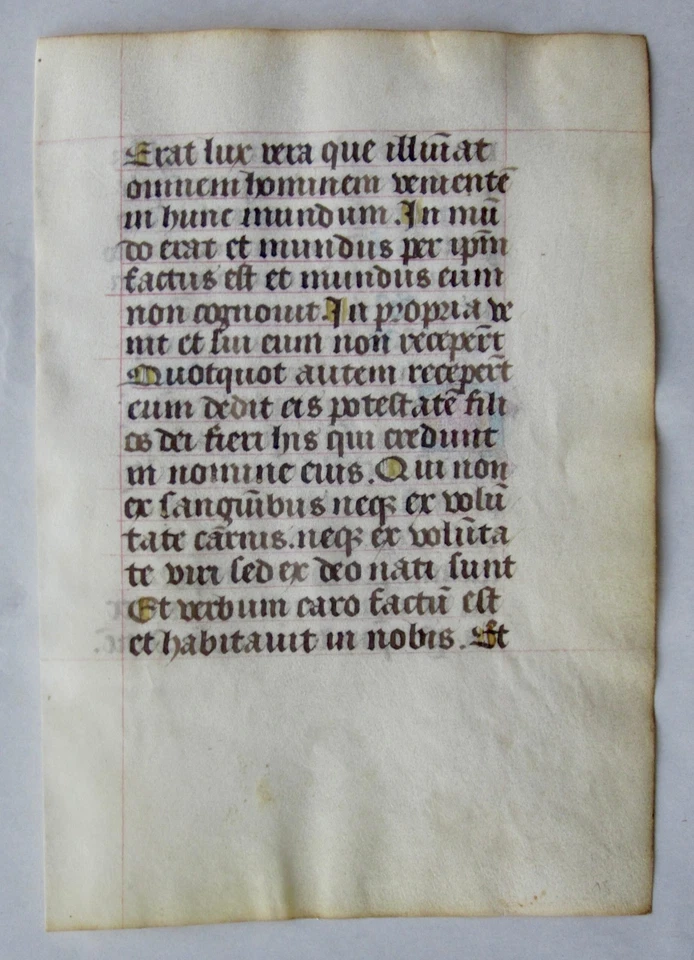 Erat lux vera que illuīat
omnem hominem venientē
in hunc mundum. In mū
do erat et mundus per ip̄m
factus est et mundus eum
non cognouit. In propria ve
nit et sui eum non recepert̄
Quotquot autem recepert̄
eum dedit eis potestatē fili
os dei fieri his qui credunt
in nomine eius. Qui non
ex sanguībus neqꝫ ex volū
tate carnis. neqꝫ ex volūta
te viri sed ex deo nati sunt
Et verbum caro factū est
et habitauit in nobis. Et